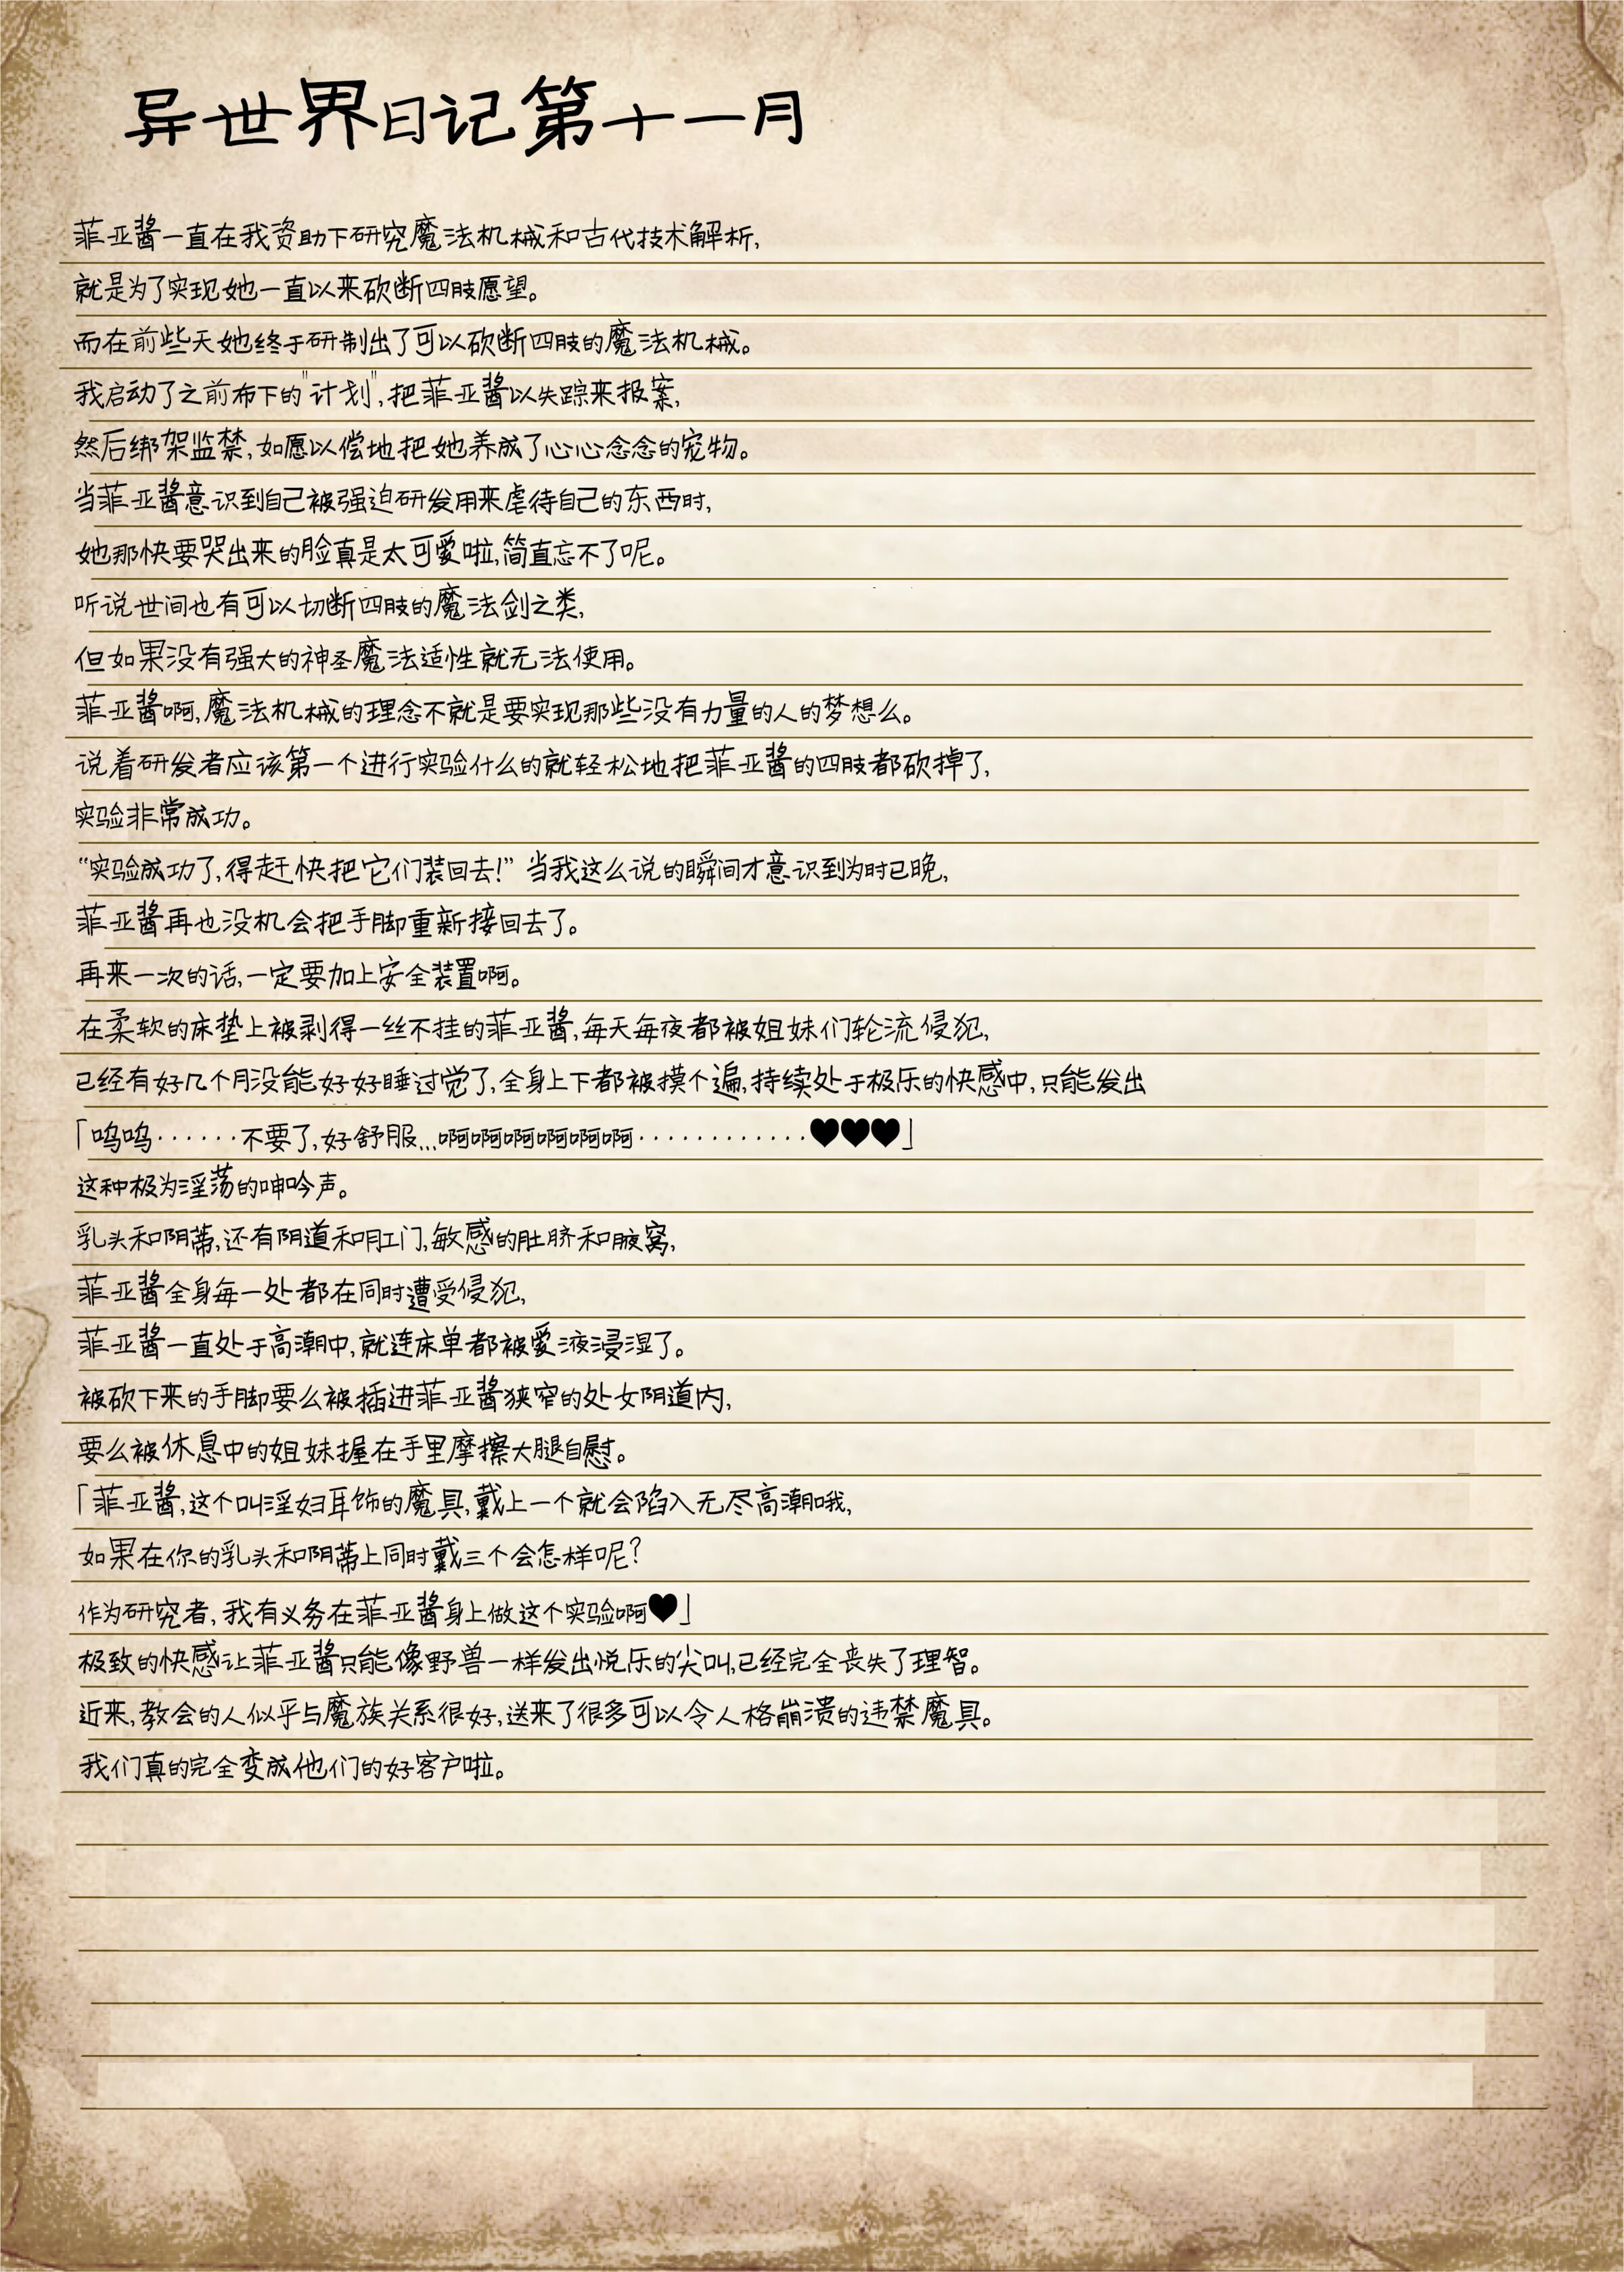 异世界日记第十一月
菲亚酱一直在我资助下研究魔法机械和古代技术解析,
就是为了实现她一直以来砍断四肢愿望。
而在前些天她终于研制出了可以砍断四肢的魔法机械。
我启动了之前布下的"计划",把菲亚酱以失踪来报案,
然后绑架监禁,如愿以偿地把她养成了心心念念的宠物。
当菲亚酱意识到自己被强迫研发用来虐待自己的东西时,
她那快要哭出来的脸真是太可爱啦,简直忘不了呢。
听说世间也有可以切断四肢的魔法剑之类,
但如果没有强大的神圣魔法适性就无法使用。
菲亚酱啊,魔法机械的理念不就是要实现那些没有力量的人的梦想么。
说着研发者应该第一个进行实验什么的就轻松地把菲亚酱的四肢都砍掉了,
实验非常成功。
“实验成功了,得赶快把它们装回去!” 当我这么说的瞬间才意识到为时已晚,
菲亚酱再也没机会把手脚重新接回去了。
再来一次的话,一定要加上安全装置啊。
在柔软的床垫上被剥得一丝不挂的菲亚酱,每天每夜都被姐妹们轮流侵犯,
已经有好几个月没能好好睡过觉了,全身上下都被摸个遍,持续处于极乐的快感中,只能发出
「呜呜······不要了,好舒服...啊啊啊啊啊啊············♥♥♥」
这种极为淫荡的呻吟声。
乳头和阴蒂,还有阴道和肛门,敏感的肚脐和腋窝,
菲亚酱全身每一处都在同时遭受侵犯,
菲亚酱一直处于高潮中,就连床单都被爱液浸湿了。
被砍下来的手脚要么被插进菲亚酱狭窄的处女阴道内,
要么被休息中的姐妹握在手里摩擦大腿自慰。
「菲亚酱,这个叫淫妇耳饰的魔具,戴上一个就会陷入无尽高潮哦,
如果在你的乳头和阴蒂上同时戴三个会怎样呢?
作为研究者,我有义务在菲亚酱身上做这个实验啊♥」
极致的快感让菲亚酱只能像野兽一样发出悦乐的尖叫,已经完全丧失了理智。
近来,教会的人似乎与魔族关系很好,送来了很多可以令人格崩溃的违禁魔具。
我们真的完全变成他们的好客户啦。